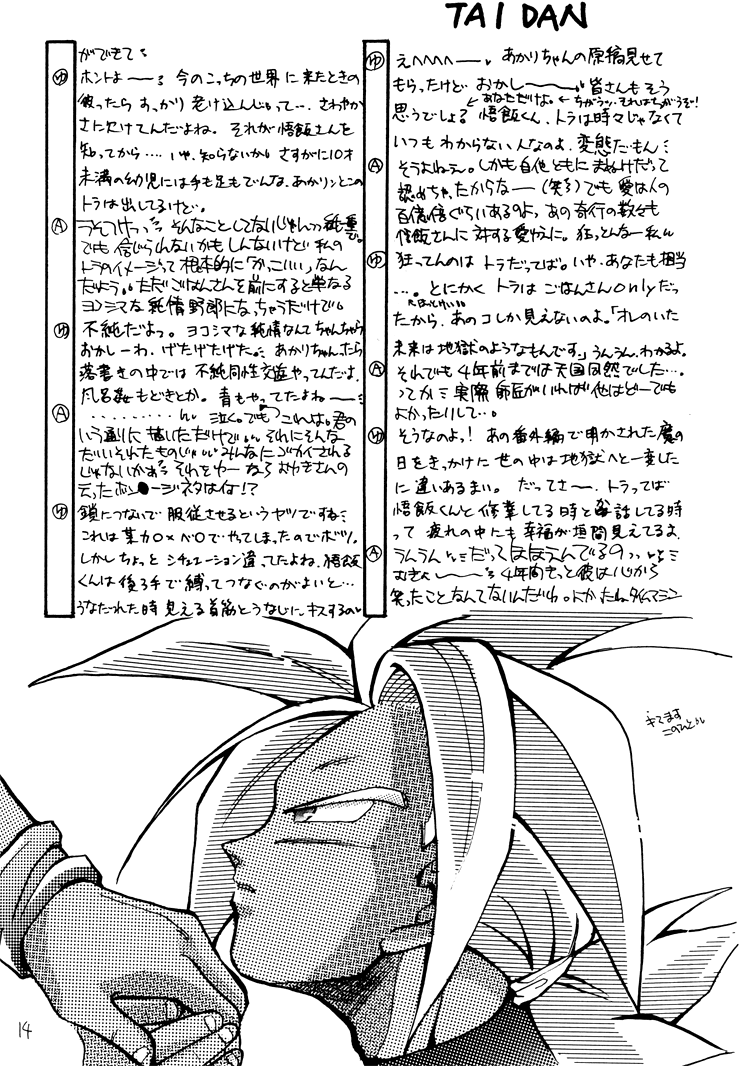 TAIDAN
ゆ えへへへへー。あかりちゃんの原稿見せて
もらったけど おかし〜〜〜。皆さんもそう
あなただけよ。← ちがうッ、それはちがうぞ!
思うでしょ 悟飯くん、トラは時々じゃなくて
いつも わからない人なのよ、変態だもん…
A そうよねェ。しかも自他ともにまぬけだって
認めちゃったからなー(笑)でも 愛は人の
百億倍ぐらいあるのよっ あの奇行の数々も
悟飯さんに対する愛ゆえに。狂っとんなー私ら
ゆ 狂ってんのは トラだってば。いや、あなたも相当
…。とにかく トラは ごはんさんonlyだっ
たから、あのコしか見えないのよ。「オレのいた
未来は地獄のようなもんです。」うんうん、わかるよ。
A それでも 4年前までは天国同然でした…。
ってか 実際 師匠がいれば他はどーでも
よかったりして…。
ゆ そうなのよっ! あの番外編で明かされた魔の
日をきっかけに 世の中は地獄へと一変した
に違いあるまい。 だってさー、トラってば
悟飯くんと修業してる時と会話してる時
って 疲れの中にも 幸福が垣間見えてるよ
A うんうん だってほほえんでるのっ
むきょ〜〜〜 4年間きっと彼は心から
笑ったことなんてないんだわ。よかったねタイムマシン
ができて。
ゆ ホントよー 今のこっちの世界に来たときの
彼ったら すっかり 老け込んじゃって…、さわやか
さに欠けてんだよね。それが悟飯さんを
知ってから…. いや、知らないか。さすがに10才
未満の幼児には手も足もでんな、あかりンとこの
トラは出してるけど。
A うそつけっ そんなことしてないじゃんっ 純重で。
でも 信じられないかもしんないけど 私の
トラのイメージって 根本的に「かっこいい」なん
だよう。ただごはんさんを前にすると単なる
ヨコシマな純情野郎になっちゃうだけで
ゆ 不純だよっ。ヨコシマな純情なんてちゃんちゃら
おかしーわ、げたげたげた。あかりちゃんたら
落書きの中では 不純同性交遊やってんだよ、
もどきとか。育もやってたよねー
A ………… 泣く。でも これは君の
いう通りに描いただけで それにそんな
だいいそれたものじゃ みんなにゴカイされる
じゃないかぁ それをゆーなら おゆきさんの
云ったボツ●ージネタはなに!?
ゆ 鎖につないで 服従させるというヤツですね
これは某カ○×ベ○でやてしまったのでボツ!。
しかしちょっと シチュエーション違ってたよね、悟飯
くんは後ろ手で縛ってつなぐのがよいと…
うなだれた時 見える首筋とうなじに キスするの
きてます
このひと
14